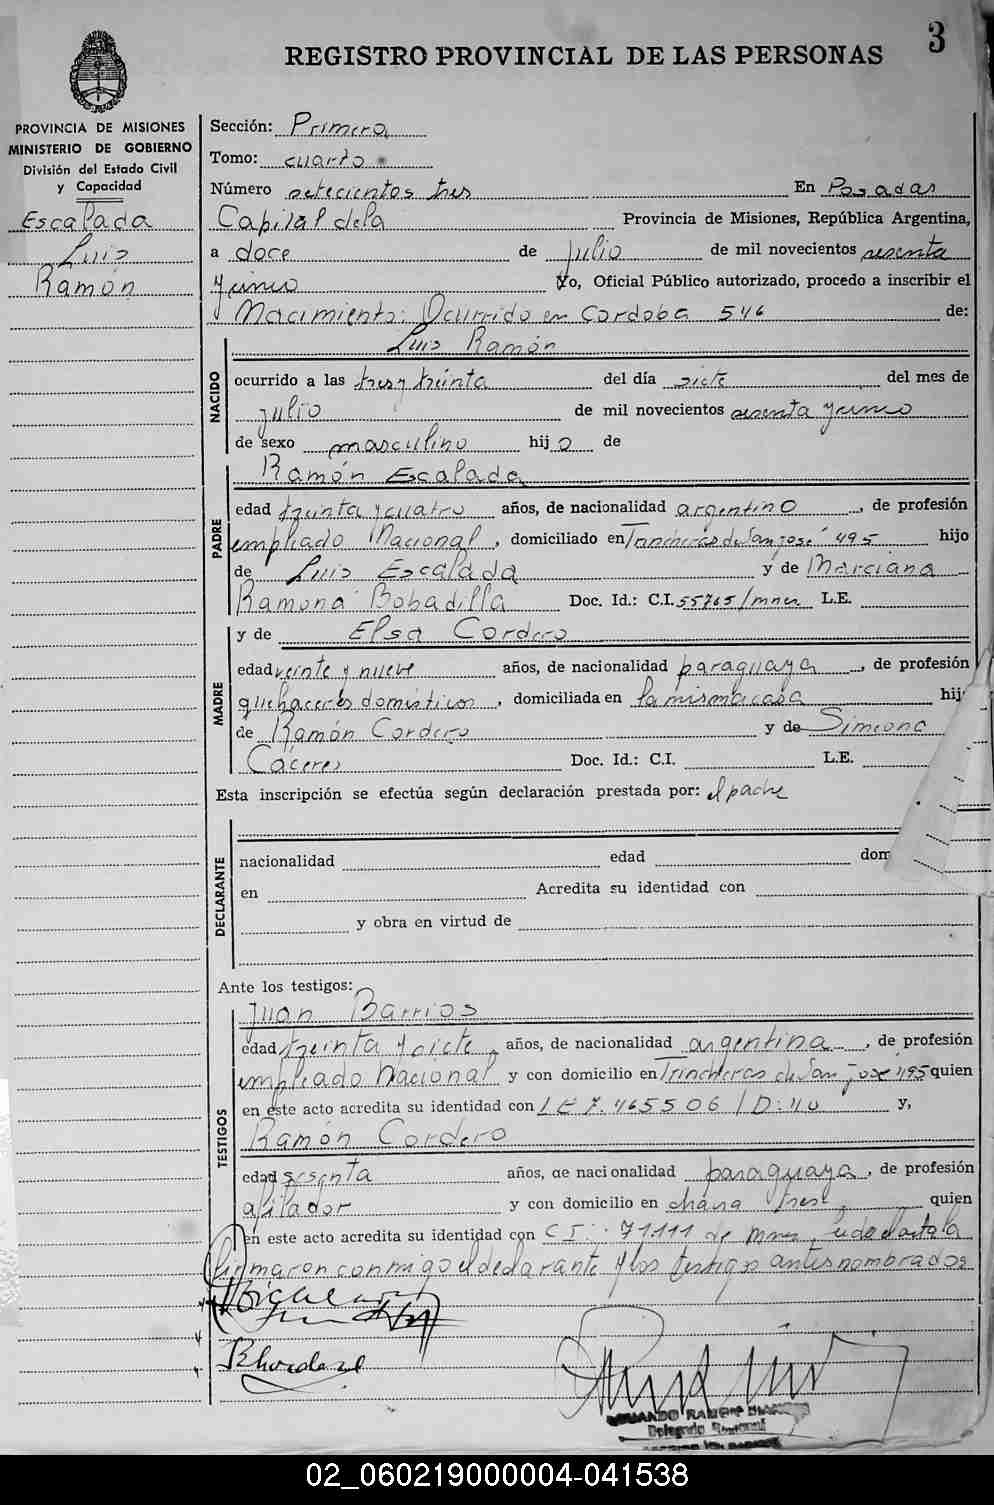 3
REGISTRO PROVINCIAL DE LAS PERSONAS
PROVINCIA DE MISIONES
MINISTERIO DE GOBIERNO
División del Estado Civil
y Capacidad
Escalada
Luis
Ramón
Sección: Primera
Tomo: cuarto
Número setecientos tres En Posadas
Capital dela Provincia de Misiones, República Argentina,
a doce de julio de mil novecientos sesenta
y uno Yo, Oficial Público autorizado, procedo a inscribir el
Nacimiento: Ocurrido en Cordoba 546 de:
Luis Ramón
NACIDO
ocurrido a las tres y treinta del día siete del mes de
julio de mil novecientos sesenta y uno
de sexo masculino hijo de
PADRE
Ramón Escalada
edad treinta y cuatro años, de nacionalidad argentino, de profesión
empleado Nacional, domiciliado en Trincheras de San José 495 hijo
de Luis Escalada y de Marciana
Ramona Bobadilla Doc. Id.: C.I. 55765/mnes L.E.
MADRE
y de Elsa Cordero
edad veinte y nueve años, de nacionalidad paraguaya, de profesión
quehaceres domésticos, domiciliada en la misma casa hij
de Ramón Cordero y de Simeona
Cáceres Doc. Id.: C.I. L.E.
Esta inscripción se efectúa según declaración prestada por: el padre
DECLARANTE
nacionalidad edad dom
en Acredita su identidad con
y obra en virtud de
Ante los testigos:
TESTIGOS
Juan Barrios
edad treinta y siete, años, de nacionalidad argentina, de profesión
empleado Nacional y con domicilio en Trincheras de San José 495 quien
en este acto acredita su identidad con L E 7.465506 / D:40 y,
Ramón Cordero
edad sesenta años, de nacionalidad paraguaya, de profesión
afilador y con domicilio en chacra tres, quien
en este acto acredita su identidad con C I: 71111 de mnes, leida el acta la
firmaron conmigo el declarante y los testigos antes nombrados
Delegado
02_060219000004-041538